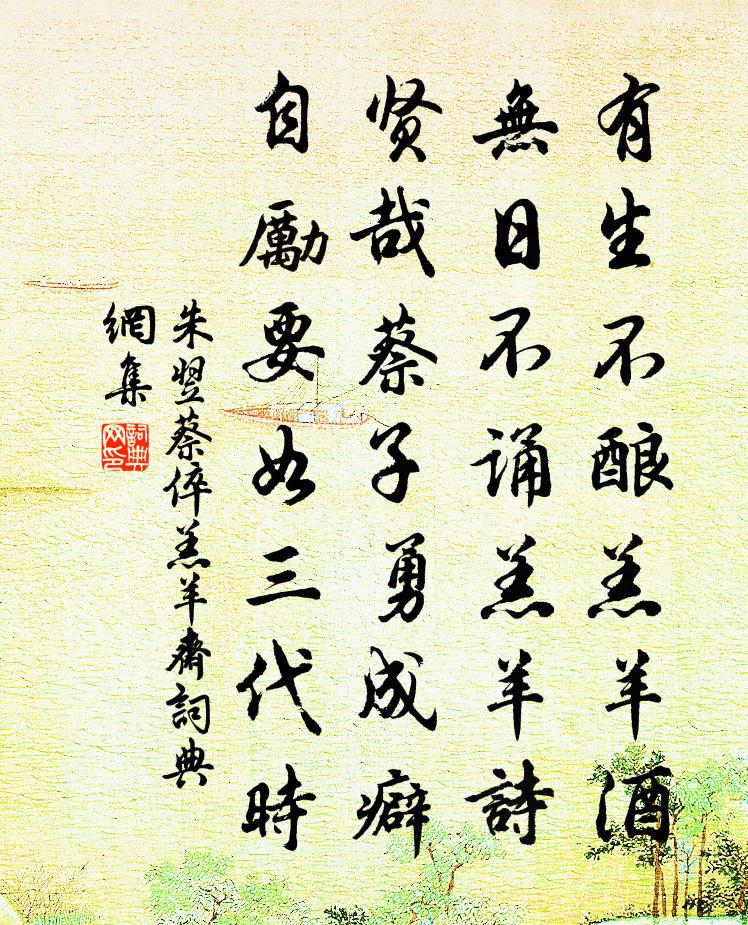 有生不酿羔羊酒
無日不诵羔羊詩
贤哉蔡子勇成癖
自勵要如三代時
朱翌蔡倅羔羊齋詞典
網集
詞典
网印